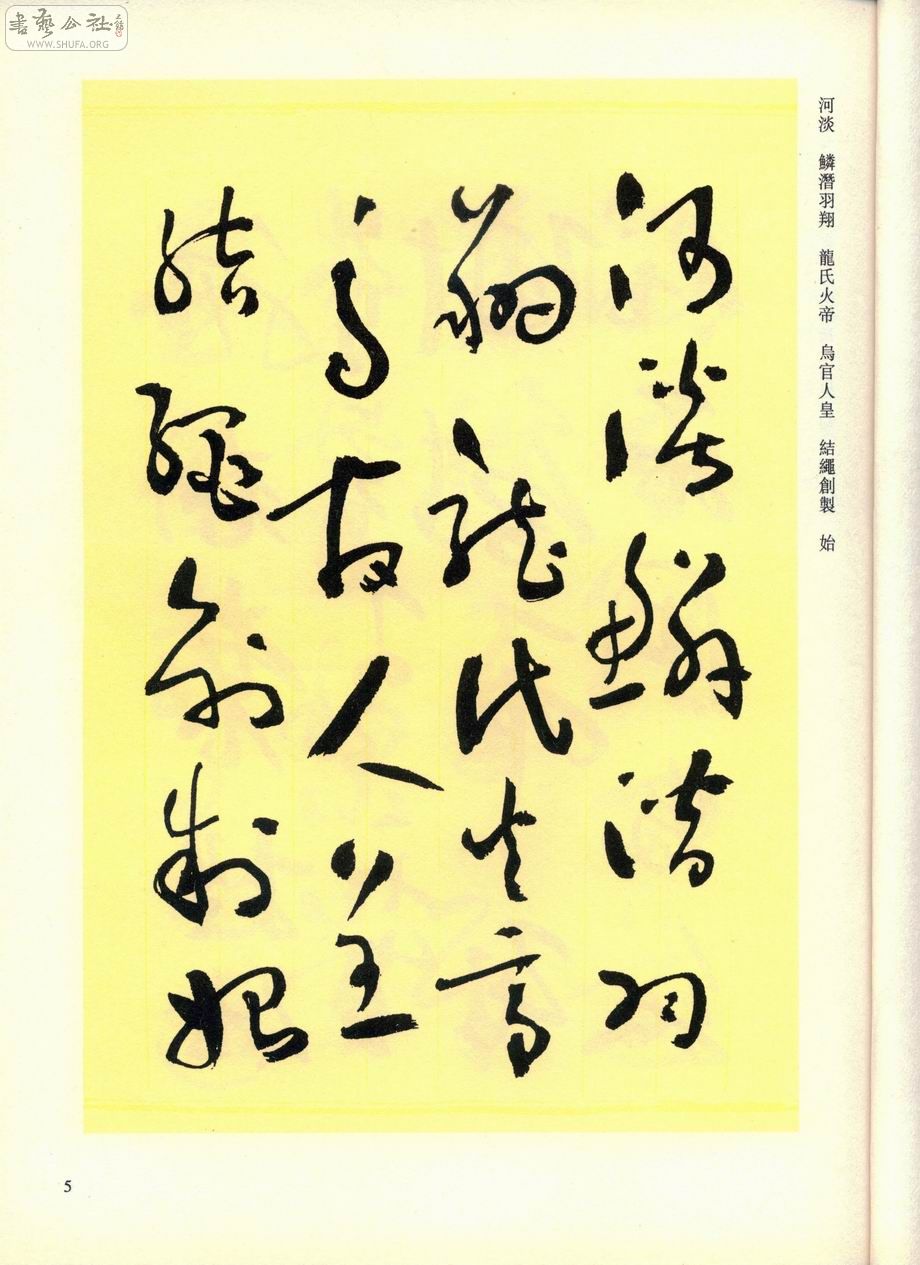 書藝公社
WWW.SHUFA.ORG
河淡 鱗潛羽翔 龍氏火帝 烏官人皇 結繩創製 始
河淡鱗潛羽
翔龍師火帝
鳥官人皇
結繩創制始
5